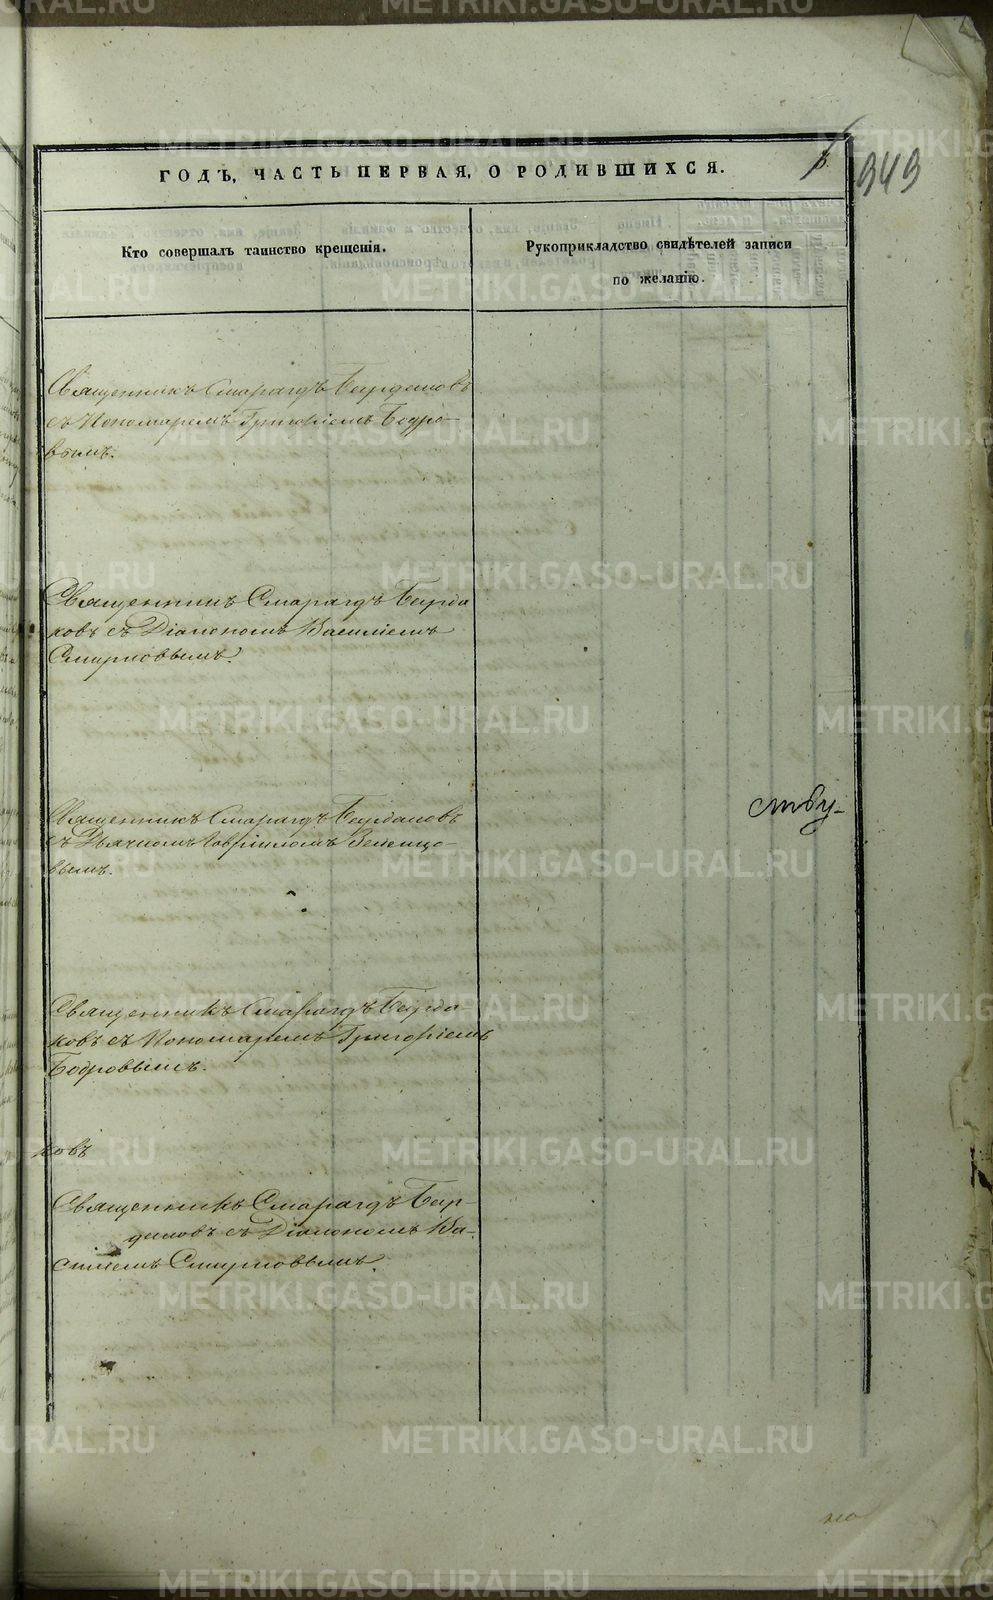 ГОДЪ, ЧАСТЬ ПЕРВАЯ, О РОДИВШИХСЯ.
343
Кто совершалъ таинство крещенія.
Рукоприкладство свидѣтелей записи
по желанію.
Священникъ Смарагдъ Бардаковъ
съ Пономаремъ Григоріемъ Бодро-
вымъ.
Священникъ Смарагдъ Барда
ковъ съ Діакономъ Василіемъ
Смирновымъ.
Священникъ Смарагдъ Бардаковъ
съ Дьячкомъ Гавріиломъ
вымъ.
Священникъ Смарагдъ Барда
ковъ съ Пономаремъ Григоріемъ
Бодровымъ.
ковъ
Священникъ Смарагдъ Бар-
даковъ съ Діакономъ Ва-
силіемъ Смирновымъ.
METRIKI.GASO-URAL.RU